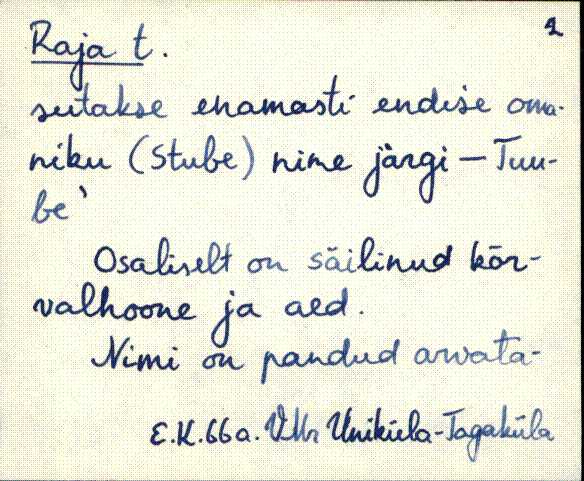 1
Raja t.
sutakse enamasti endise oma-
niku (Stube) nime järgi – Tuu-
be`
Osaliselt on säilinud kõr-
valhoone ja aed.
Nimi on pandud arvata-
E.K.66a. VMr Uniküla-Tagaküla